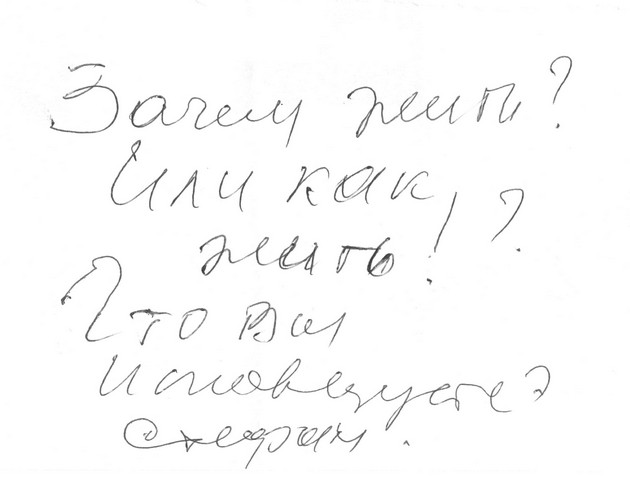 Зачем жить?
Или как
жить! ?
Что Вы
исповедуете?
Стефан.